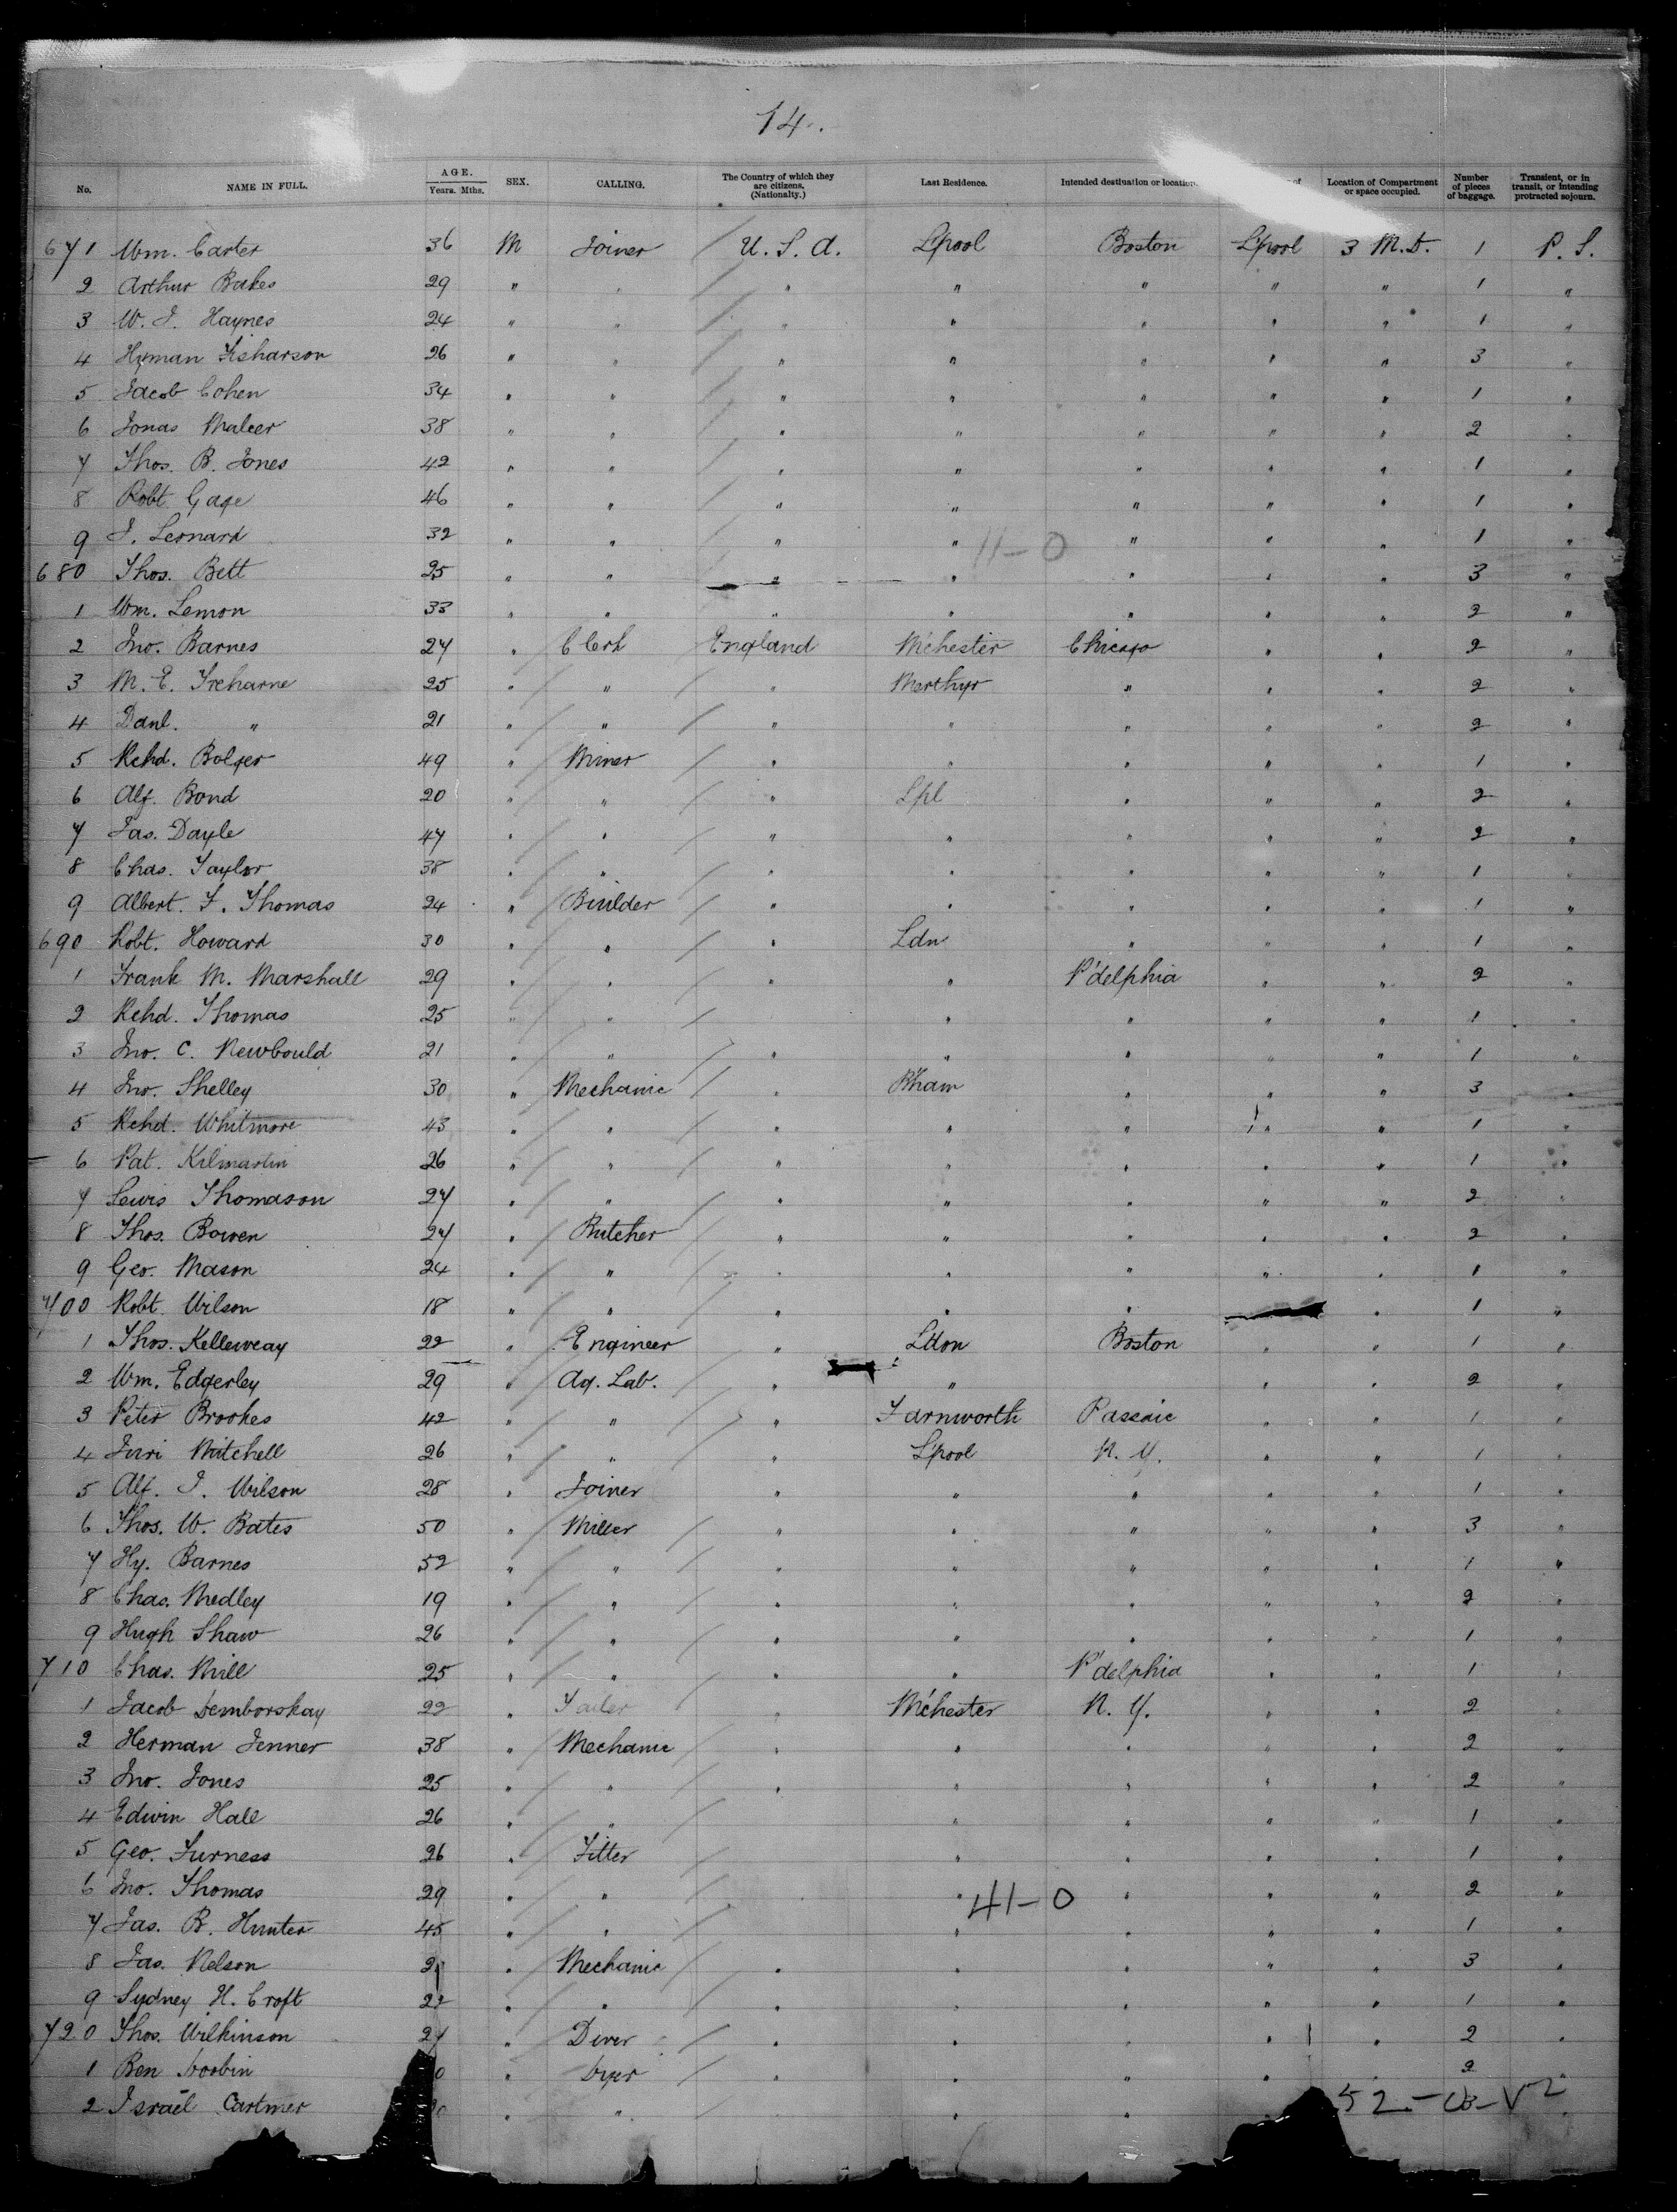 14.
No. NAME IN FULL. AGE. Years. Mths. SEX. CALLING. The Country of which they are citizens. (Nationality.) Last Residence. Intended destination or location. of Location of Compartment or space occupied. Number of pieces of baggage. Transient, or in transit, or intending protracted sojourn.
671 Wm. Carter 36 M Joiner U. S. A. L'pool Boston L'pool 3 M.D. 1 P. S.
2 Arthur Bakes 29 " " " " " " " 1 "
3 W. J. Haynes 24 " " " " " " " 1 "
4 Hyman Fisharson 26 " " " " " " " 3 "
5 Jacob Cohen 34 " " " " " " " 1 "
6 Jonas 38 " " " " " " " 2 "
7 Thos. B. Jones 42 " " " " " " " 1 "
8 Robt. Gage 46 " " " " " " " 1 "
9 J. Leonard 32 " " " " 11-0 " " " 1 "
680 Thos. Bett 25 " " " " " " " 3 "
1 Wm. Lemon 33 " " " " " " " 2 "
2 Jno. Barnes 27 " Clerk England M'chester Chicago " " 2 "
3 M. E. Treharne 25 " " " Merthyr " " " 2 "
4 Danl. " 21 " " " " " " " 2 "
5 Rchd. Bolger 49 " Miner " " " " " 1 "
6 Alf. Bond 20 " " " Lpl " " " 2 "
7 Jas. Dayle 47 " " " " " " " 2 "
8 Chas. Taylor 38 " " " " " " " 1 "
9 Albert. F. Thomas 24 " Builder " " " " " 1 "
690 Robt. Howard 30 " " " Ldn " " " 1 "
1 Frank M. Marshall 29 " " " " P'delphia " " 2 "
2 Rchd. Thomas 25 " " " " " " 1 "
3 Jno. C. Newbould 21 " " " " " " " 1 "
4 Jno. Shelley 30 " Mechanic " B'ham " " " 3 "
5 Rchd. Whitmore 43 " " " " " " " 1 "
6 Pat. Kilmartin 26 " " " " " " " 1 "
7 Lewis Thomason 27 " " " " " " " 2 "
8 Thos. Bowen 27 " Butcher " " " " " 2 "
9 Geo. Mason 24 " " " " " " " 1 "
700 Robt. Wilson 18 " " " " " " 1 "
1 Thos. Kelleweay 22 " Engineer " Ldon Boston " " 1 "
2 Wm. Edgerley 29 " Ag. Lab. " " " " 2 "
3 Peter Brookes 42 " " " Farnworth Passaic " " 1 "
4 Mitchell 26 " " " L'pool N. Y. " " 1 "
5 Alf. J. Wilson 28 " Joiner " " " " " 1 "
6 Thos. W. Bates 50 " Miller " " " " " 3 "
7 Hy. Barnes 52 " " " " " " " 1 "
8 Chas. Medley 19 " " " " " " " 2 "
9 Hugh Shaw 26 " " " " " " " 1 "
710 Chas. Mill 25 " " " P'delphia " " 1 "
1 Jacob Demborskay 22 " Tailer " M'chester N. Y. " " 2 "
2 Herman Jenner 38 " Mechanic " " " " " 2 "
3 Jno. Jones 25 " " " " " " " 2 "
4 Edwin Hall 26 " " " " " " 1 "
5 Geo. Furness 26 " Fitter " " " " 1 "
6 Jno. Thomas 29 " " " 41-0 " " " 2 "
7 Jas. B. Hunter 45 " " " " " " 1 "
8 Jas. Nelson " Mechanic " " " " " 3 "
9 Sydney H. Croft 22 " " " " " " " 1 "
720 Thos. Wilkinson 27 " Diver " " " " " 2 "
1 Ben 0 " Dyer " " " " 2 "
2 Israel Cartmer " " " " 52